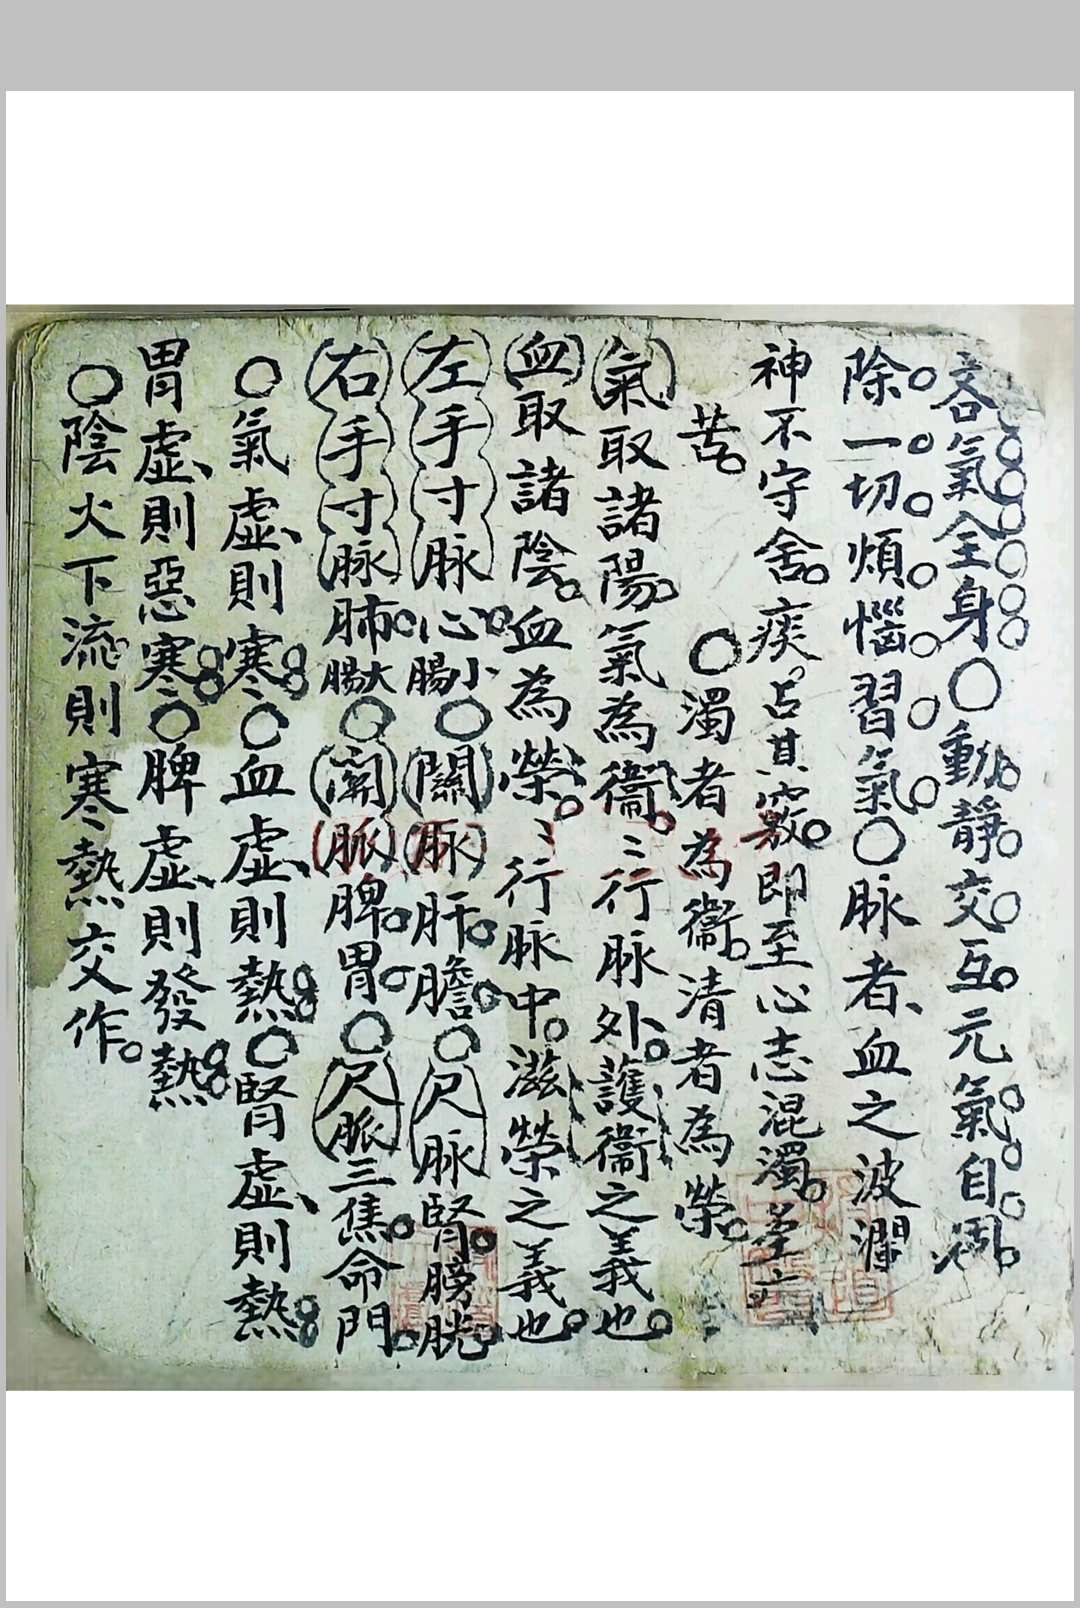 客氣全身〇動靜交互。元氣自
除一切煩惱習氣〇脉者、血之波瀾
神不守舍。痰。占其竅。即至心志混濁。
苦。 〇濁者為衞。清者為榮。
(氣)取諸陽。氣為衞。〻行脉外。護衞之義也。
(血)取諸陰。血為榮。〻行脉中。滋榮之義也。
(左手寸脉)心。小腸〇(關脉)肝。膽。〇(尺脉)腎。膀胱。
(右手寸脉)肺。大腸〇(關脈)脾。胃。〇(尺脈)三焦。命門。
〇氣虛、則寒。〇血虛、則熱。〇腎虛、則熱。
胃虛、則惡寒。〇脾虛、則發熱。
〇陰火下流。則寒熱交作。